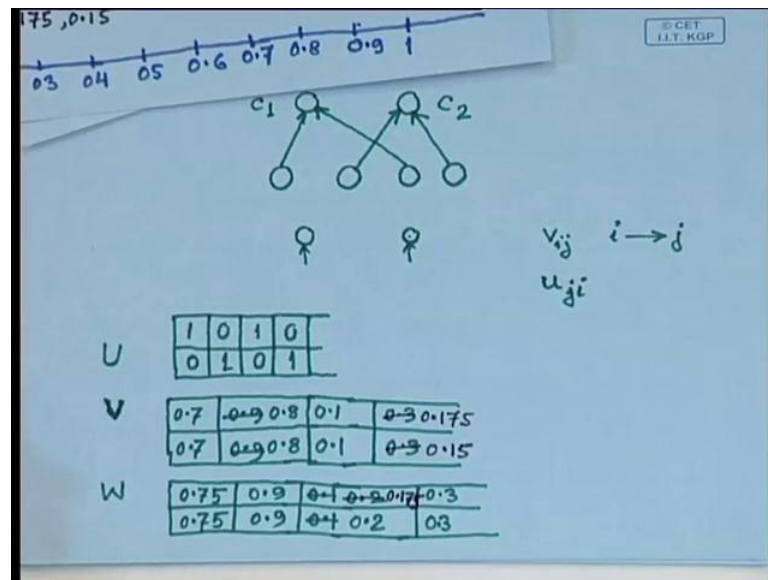 175, 0.15
03 04 05 0.6 0.7 0.8 0.9 1
© CET
I.I.T. KGP
C1 C2
Vij i → j
Uji
U
1 0 1 0
0 1 0 1
V
0.7 0.9 0.8 0.1 0.3 0.175
0.7 0.9 0.8 0.1 0.3 0.15
W
0.75 0.9 0.1 0.2 0.175 0.3
0.75 0.9 0.1 0.2 0.3